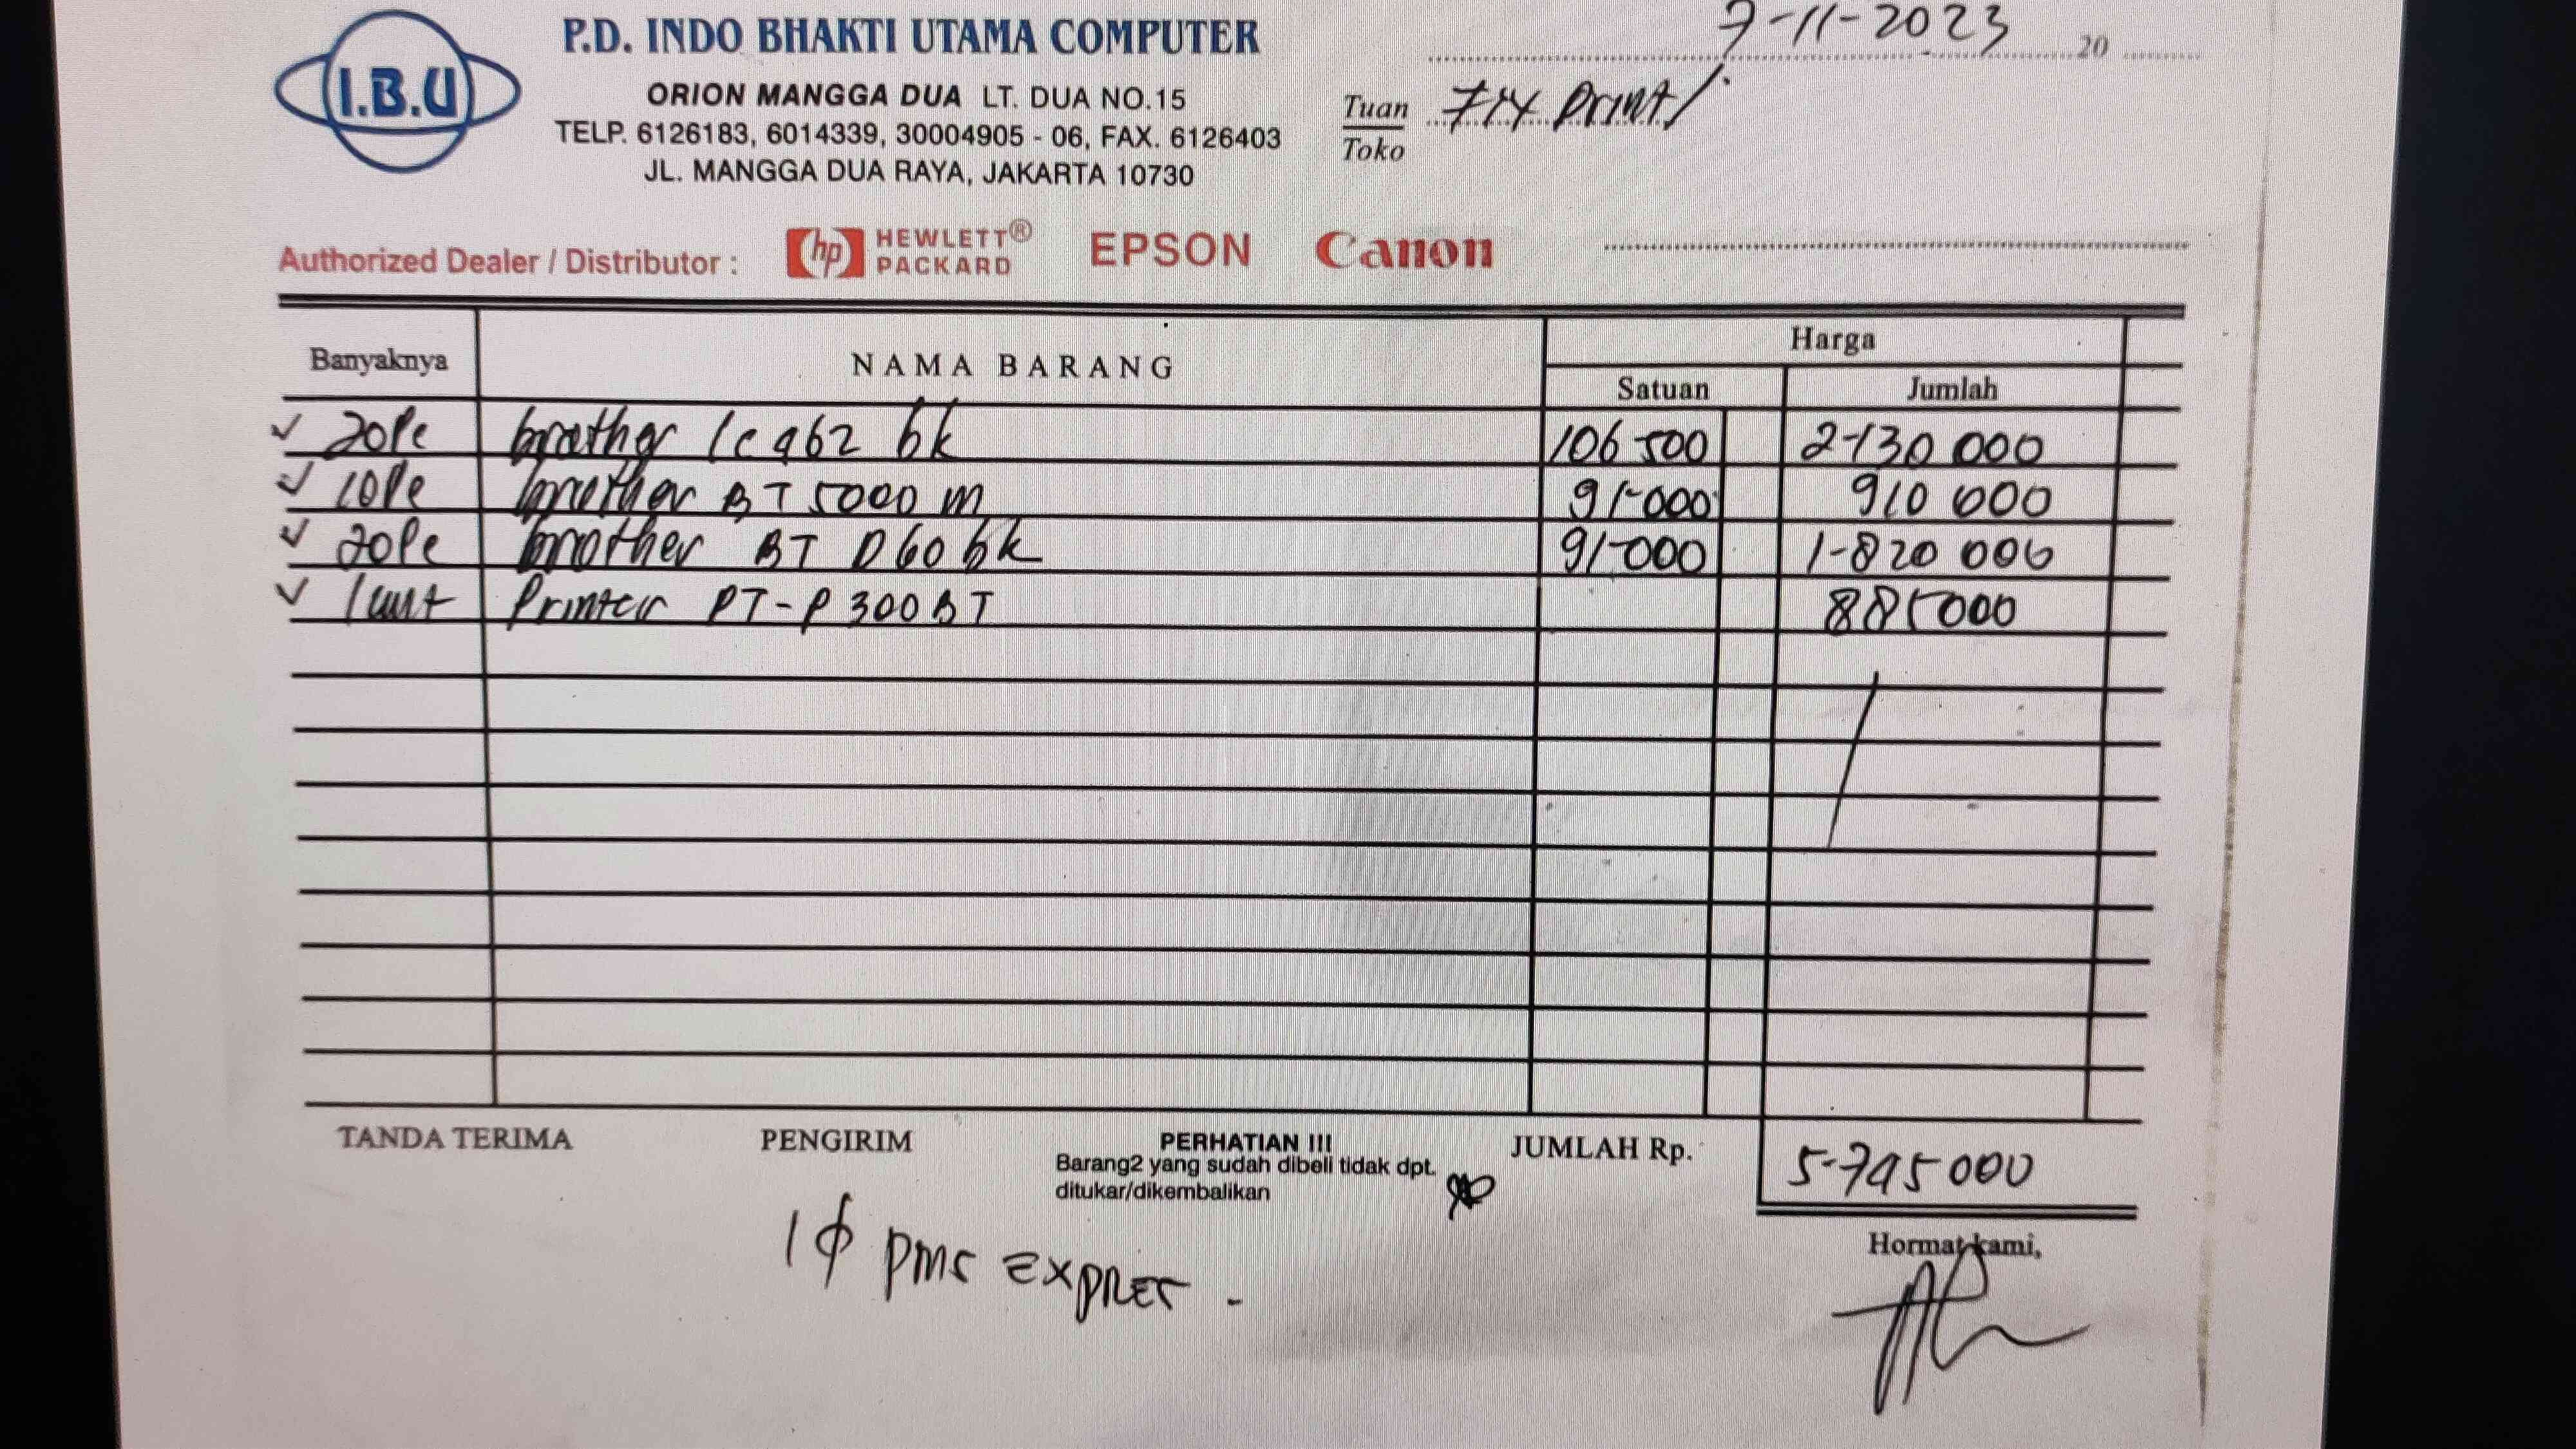 I.B.U
P.D. INDO BHAKTI UTAMA COMPUTER
ORION MANGGA DUA LT. DUA NO.15
TELP. 6126183, 6014339, 30004905 - 06, FAX. 6126403
JL. MANGGA DUA RAYA, JAKARTA 10730
7-11-2023 20
Tuan
Toko
Fix Print
Authorized Dealer / Distributor : hp HEWLETT® PACKARD EPSON Canon
Banyaknya NAMA BARANG Harga
Satuan Jumlah
20Pc brother lc 962 bk 106 500 2-130 000
10Pc brother BT 5000 m 91-000 910 000
20Pc brother BT D60 bk 91-000 1-820 000
1 unit Printer PT-P300BT 885000
TANDA TERIMA PENGIRIM PERHATIAN !!! JUMLAH Rp. 5-745 000
Barang2 yang sudah dibeli tidak dpt.
ditukar/dikembalikan
Hormat kami,
PMS EXPRES -